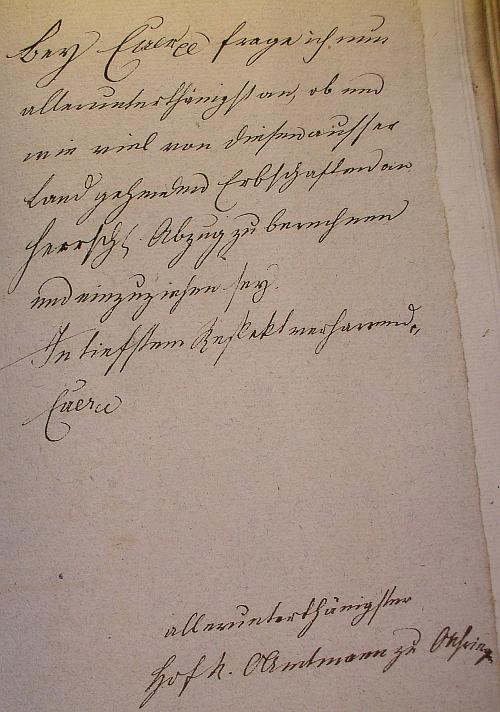 bey Euer frage ich nun
allerunterthänigst an, ob und
wie viel von diesen ausser
Land gehenden Erbschaften an
herrschl. Abzug zu berechnen
und einzuziehen sey.
In tiefstem Respekt verharrend,
Euer
allerunterthänigster
Hof R. Amtmann zu